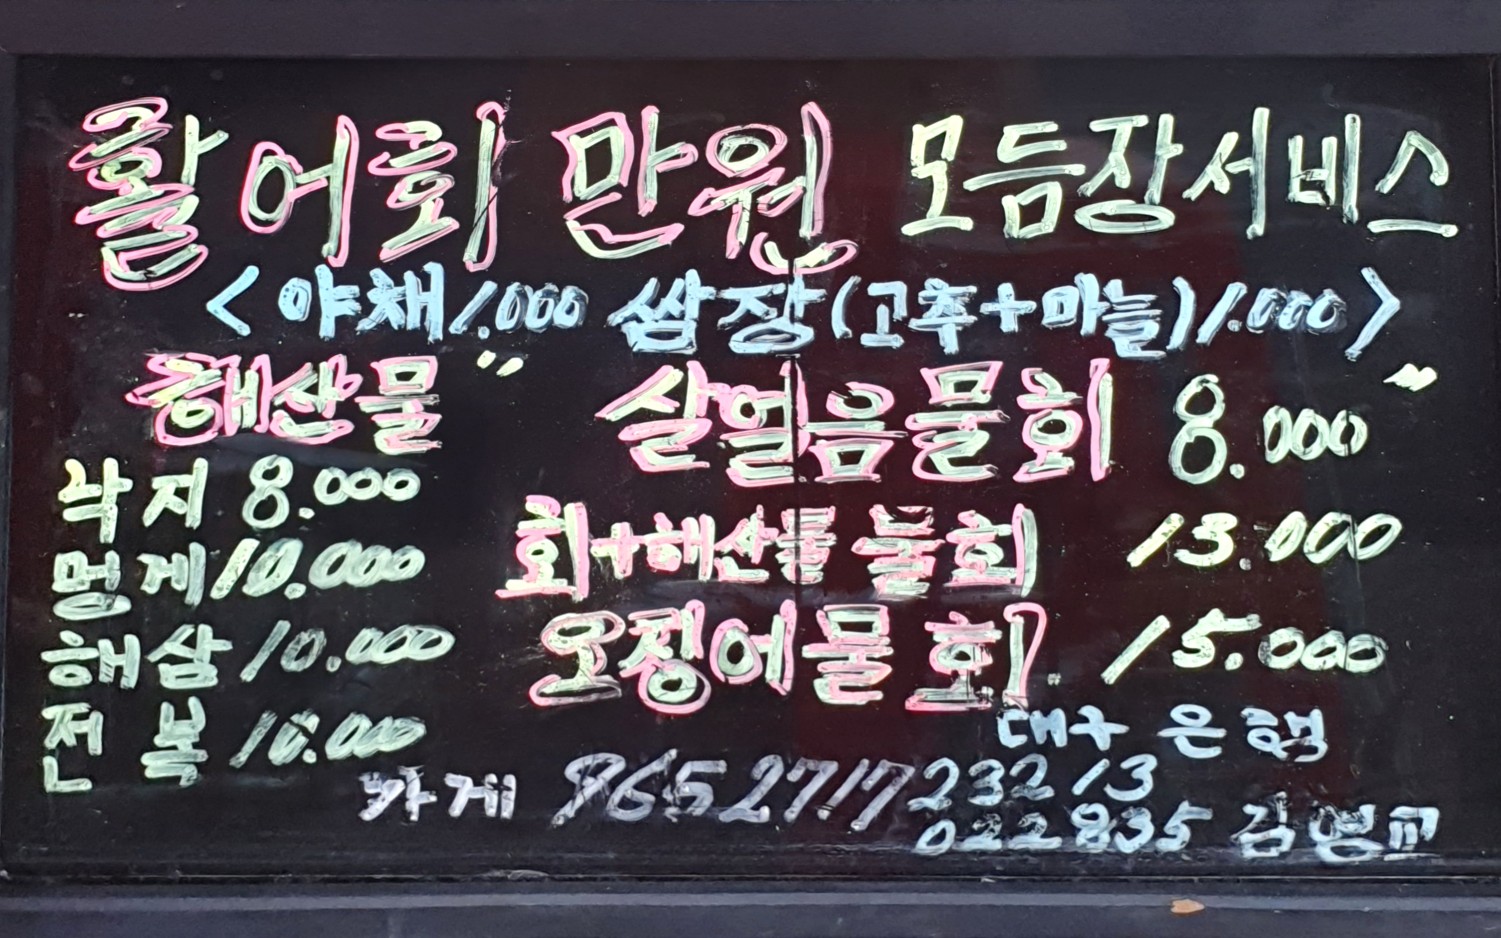 활어회 만원 모듬장서비스
<야채/1.000 쌈장(고추+마늘)/1.000>
해산물 " 살얼음물회 8.000 "
각지 8.000
회+해산물 물회 13.000
멍게 10.000
오징어물회. 15.000
해삼 10.000
전복 10.000
대구은행
가게 8652717
232 13
022835 김영교